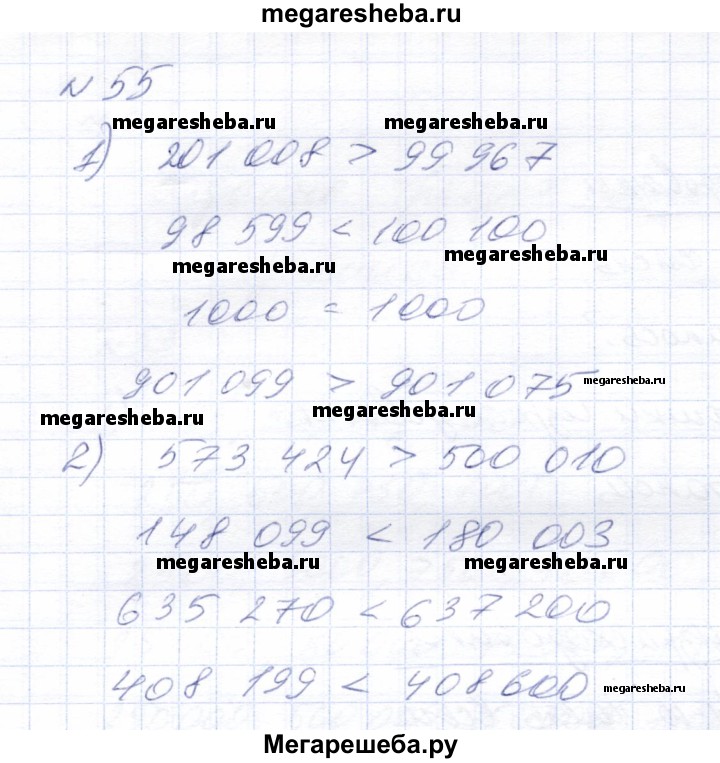 megaresheba.ru
№ 55
megaresheba.ru megaresheba.ru
1) 201 008 > 99 967
98 599 < 100 100
megaresheba.ru megaresheba.ru
1000 = 1000
901 099 > 901 075 megaresheba.ru
megaresheba.ru megaresheba.ru
2) 573 424 > 500 010
148 099 < 180 003
megaresheba.ru megaresheba.ru
635 270 < 637 200
408 199 < 408 600 megaresheba.ru
Мегарешеба.ру